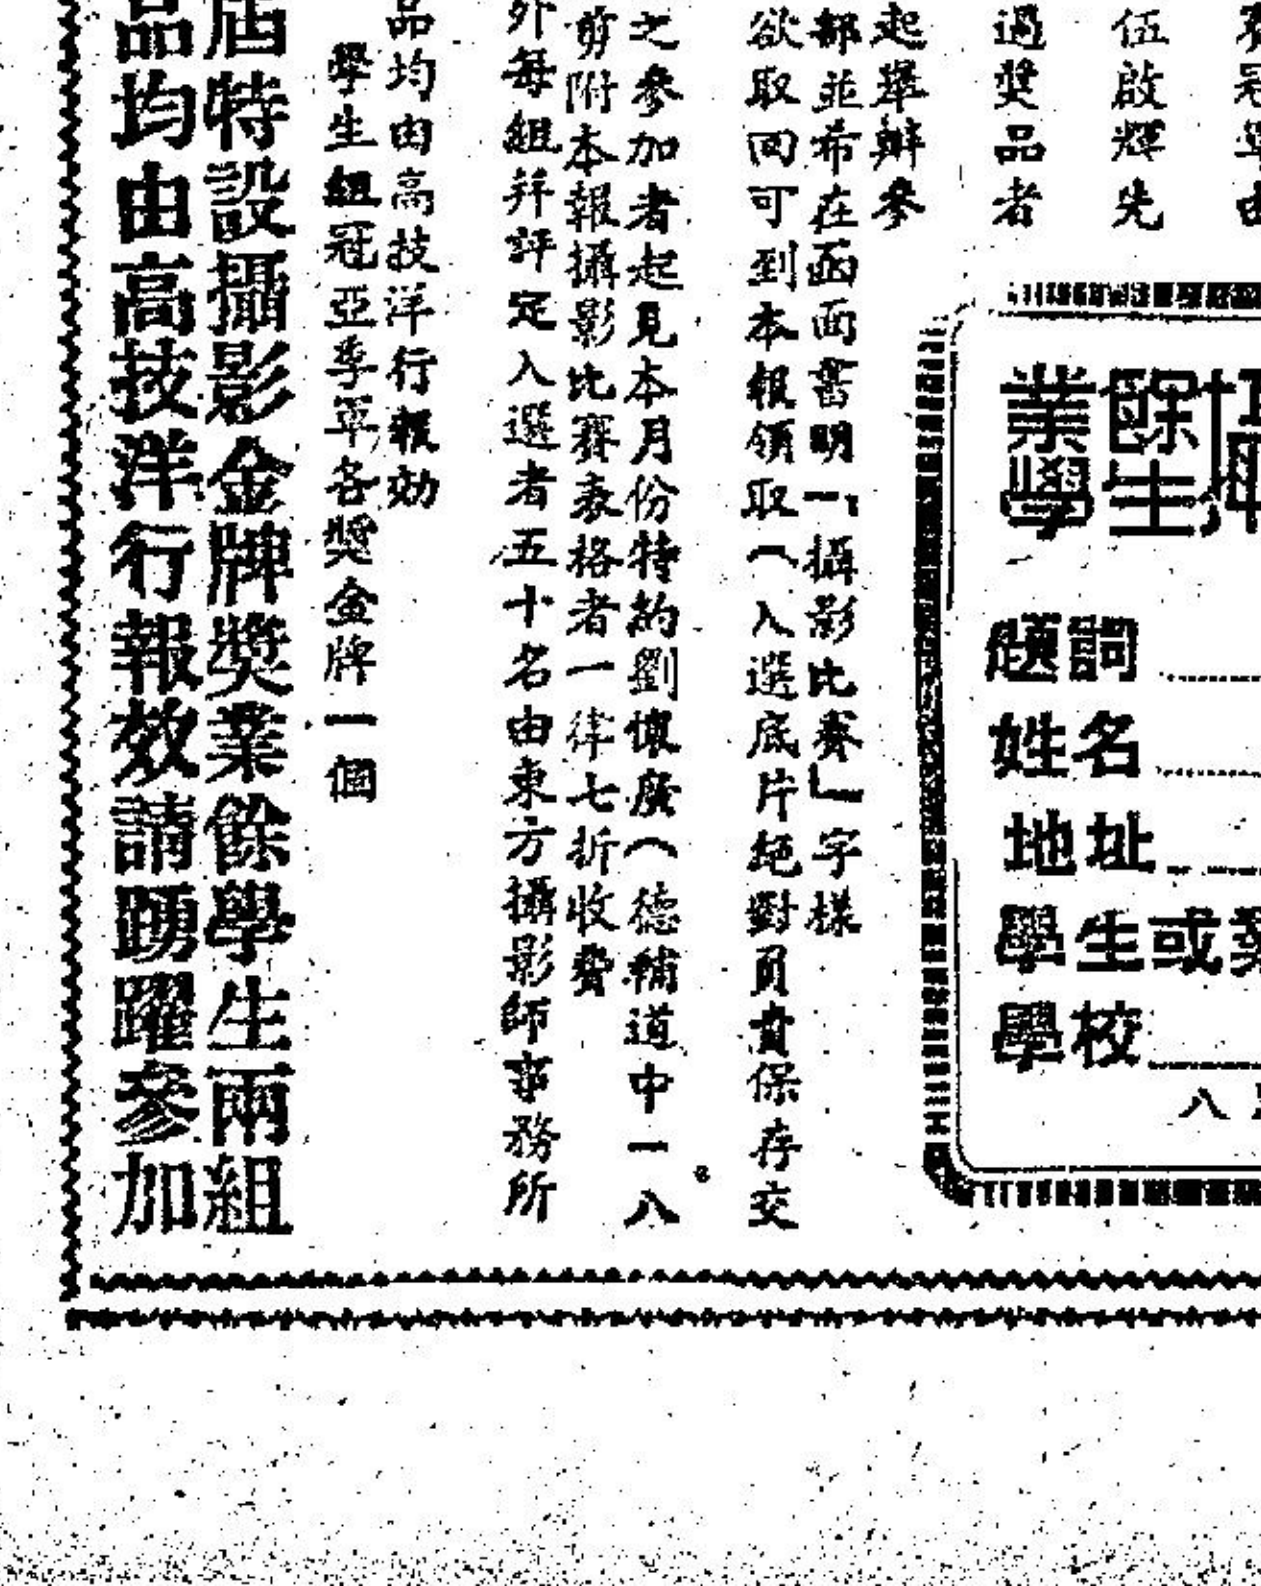 伍啟輝先
過獎品者
起舉辦參
部並希在函面書明「攝影比賽」字樣
欲取回可到本報領取（入選底片絕對負責保存交
之參加者起見本月份特約劉懷廣（德輔道中一八
剪附本報攝影比賽表格者一律七折收費
外每組幷評定入選者五十名由東方攝影師事務所
品均由高技洋行報効
學生組冠亞季軍各獎金牌一個
屆特設攝影金牌獎業餘學生兩組
品均由高技洋行報效請踴躍參加
業餘
學生
題詞
姓名
地址
學生或業
學校
八